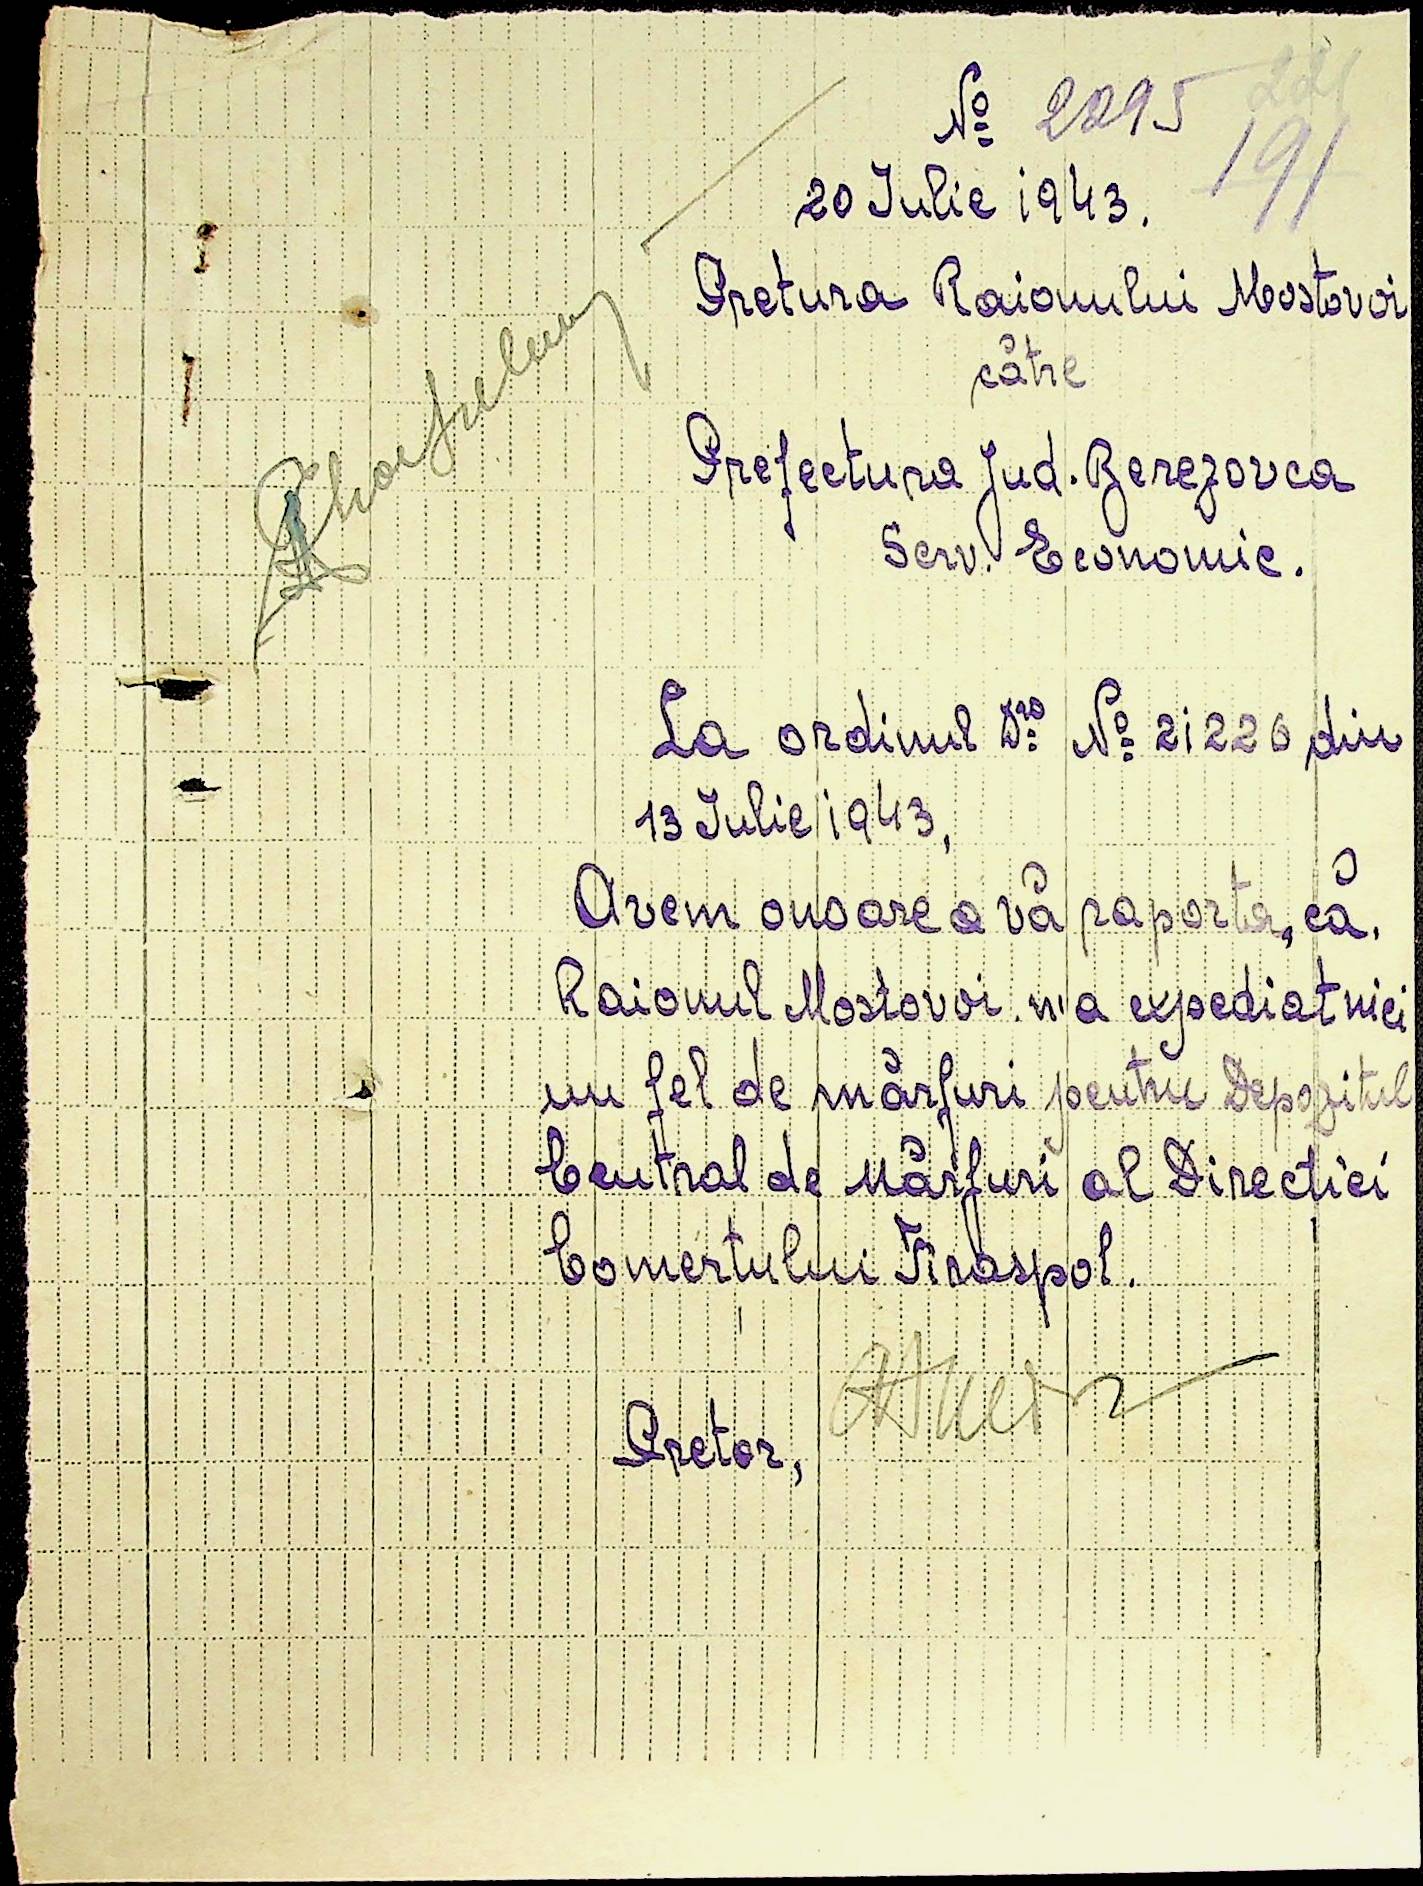 № 2295
221
191
20 Iulie 1943.
Pretura Raionului Mostovoi
către
Prefectura Jud. Berezovca
Serv. Economic.
La ordinul Dvs № 21226 din
13 Iulie 1943,
Avem onoare a vă raporta, că.
Raionul Mostovoi. n'a expediat nici
un fel de mărfuri pentru Depozitul
Central de Mărfuri al Direcției
Comerțului Tiraspol.
Pretor,